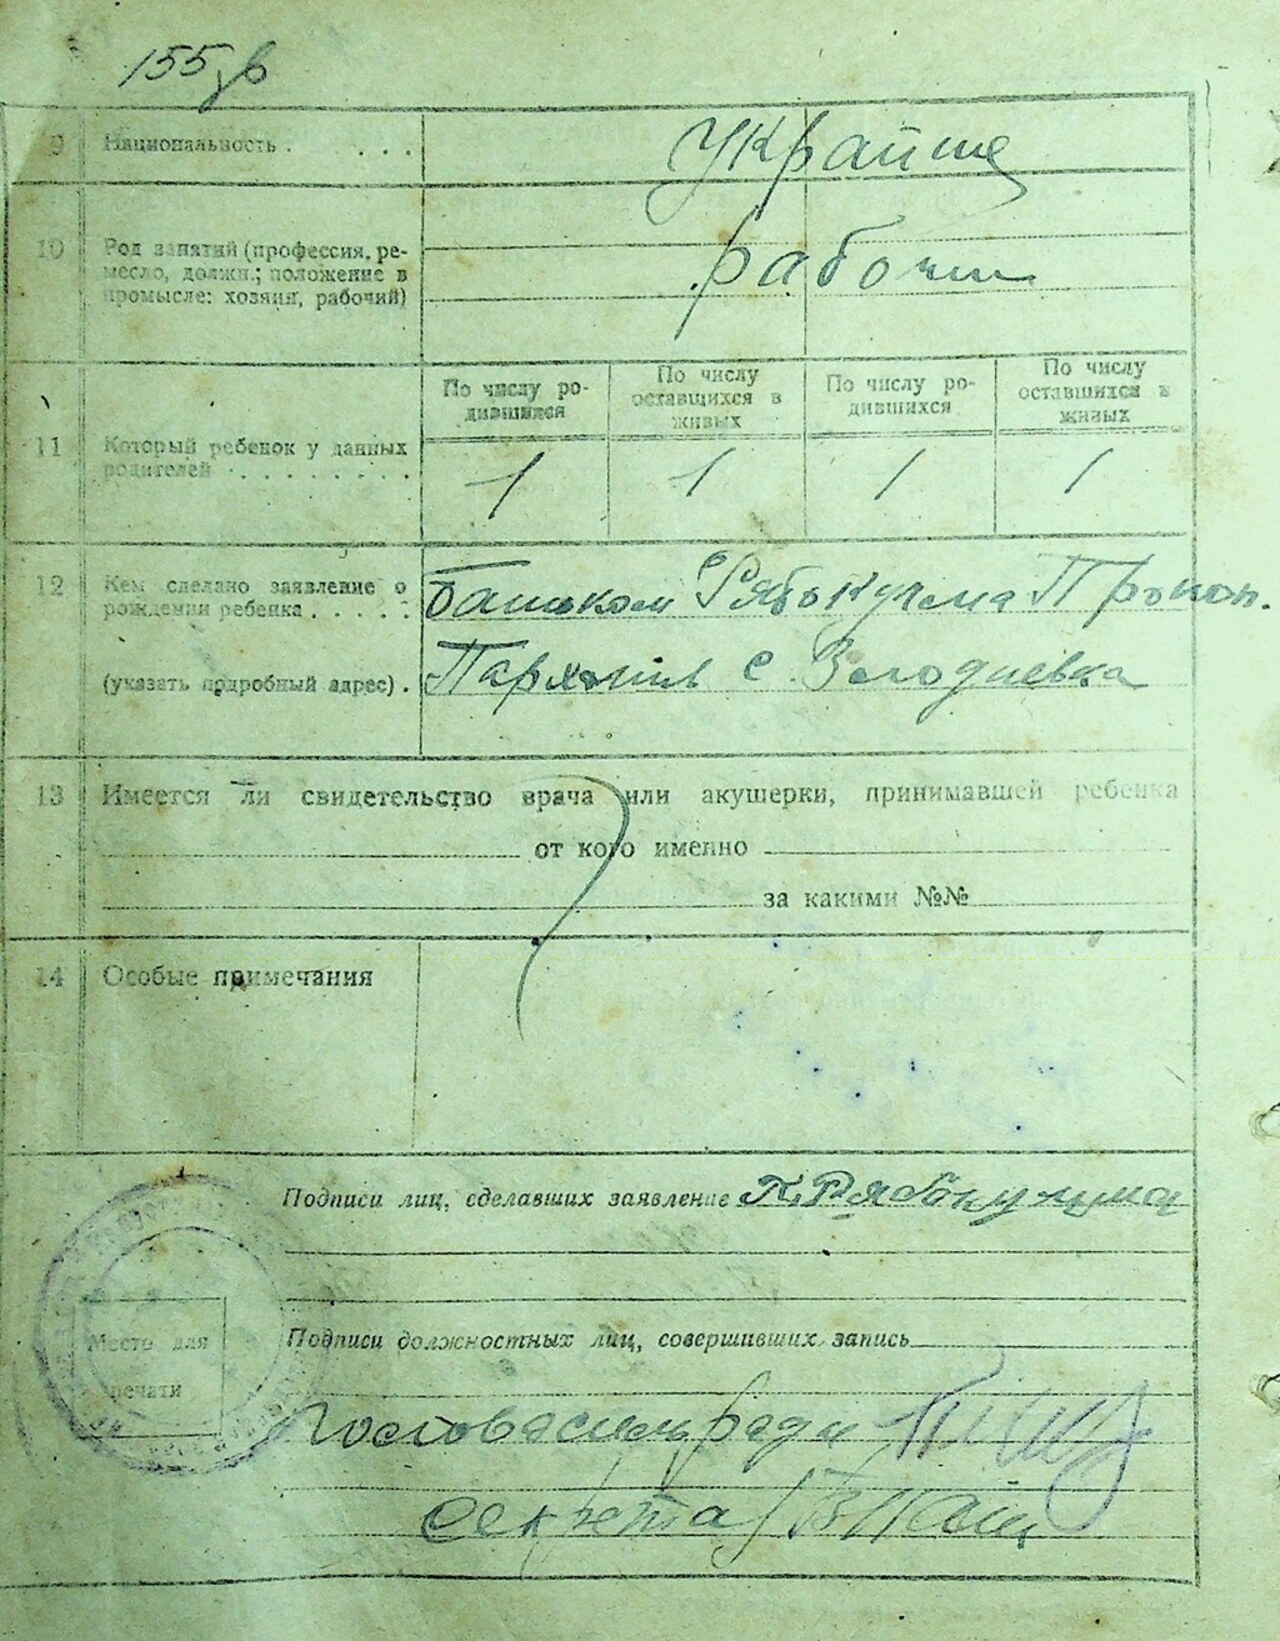 155 зв
9 Национальность . . . . Украинце
10 Род занятий (профессия, ре-
месло, должн.; положение в
промысле: хозяин, рабочий)
рабочий
По числу ро-
дившихся
По числу
оставшихся в
живых
По числу ро-
дившихся
По числу
оставшихся в
живых
11 Который ребенок у данных
родителей . . . . . . . .
1 1 1 1
12 Кем сделано заявление о
рождении ребенка . . . . .
Батьком Рябокучма Прокоп.
(указать подробный адрес) . с.
13 Имеется ли свидетельство врача или акушерки, принимавшей ребенка
от кого именно
за какими №№
14 Особые примечания
Подписи лиц, сделавших заявление П. Рябокучма
Место для
печати
Подписи должностных лиц, совершивших запись
Голова сільради
секретар